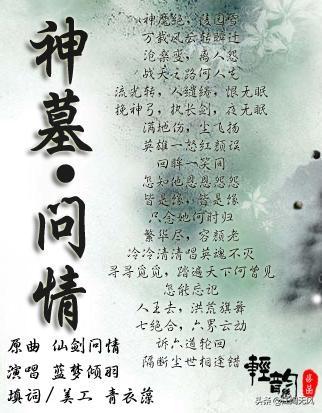 神墓·问情
神魔绝，陵园寄
万载风云转瞬迁
沧桑变，离人怨
战天之路何人走
流光转，人缱绻，恨无眠
挽神弓，执长剑，夜无眠
满地伤，尘飞扬
英雄一怒红颜误
回眸一笑间
怎知他恩恩怨怨
皆是缘，皆是缘
只念她何时归
繁华尽，容颜老
冷冷清清唱英魂不灭
寻寻觅觅，踏遍天下何曾见
怎能忘记
人王去，洪荒旗舞
七绝合，六界云动
诉六道轮回
隔断尘世相逢错
原曲 仙剑问情
演唱 蓝梦倾羽
填词/美工 青衣藻
轻韵
头条@江湖无风